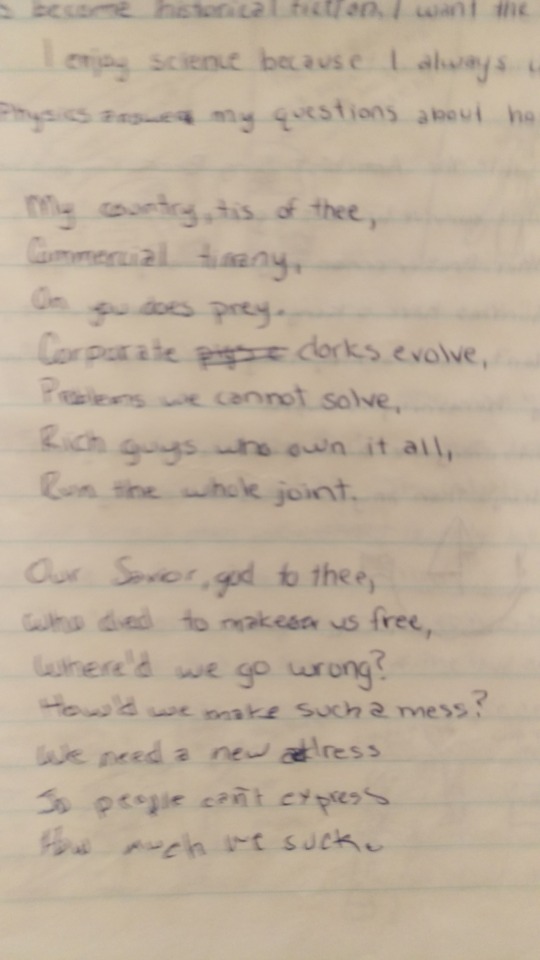 become historical fiction, I want the
I enjoy science because I always
Physics answer my questions about ho
My country, tis of thee,
Commercial tirany,
On you does prey.
Corporate dorks evolve,
Problems we cannot solve,
Rich guys who own it all,
Run the whole joint.
Our Savior, god to thee,
Who died to make us free,
Where'd we go wrong?
How'd we make such a mess?
We need a new adress
So people can't express
How much we suck.